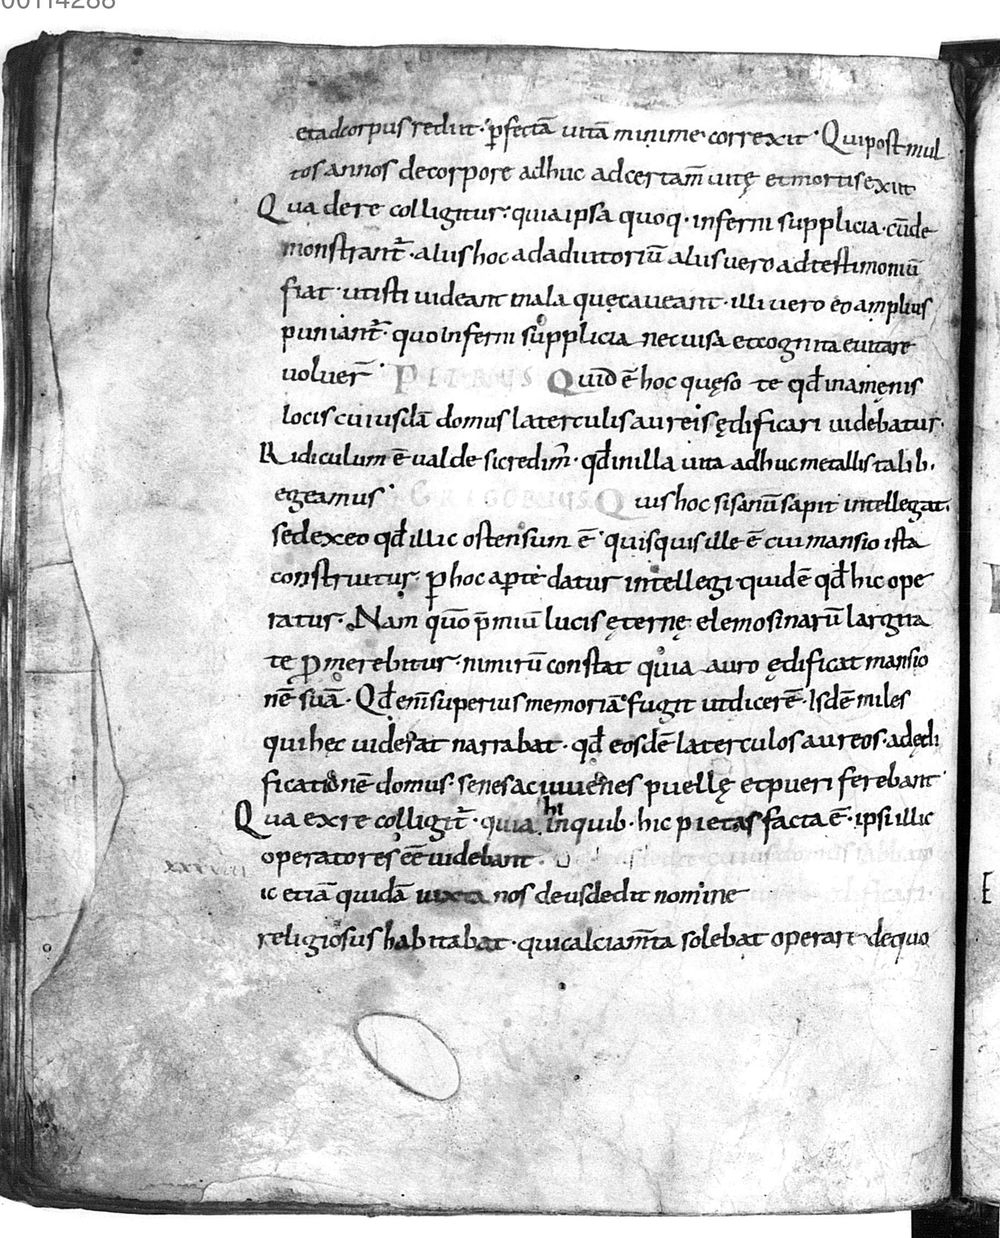 00114288
et ad corpus rediit · ꝑfectā uitā minime · correxit · Qui post mul
tos annos de corpore adhuc ad certam̄ uitę et mortis exiit
Qua de re colligitur · quia ipsa quoq · inferni supplicia · cū de
monstrant̄ · aliis hoc ad adiutoriū aliis uero ad testimoniū
fiat · ut isti uideant mala quę caueant · illi uero eo amplius
puniant̄ · quo inferni supplicia nec uisa et cognita euitare
uoluer̄ · PETRUS Quid ē hoc quęso te qđ in amęnis
locis cuiusdā domus laterculis aureis ędificari uidebatur ·
Ridiculum ē ualde si credim̄ · qđ in illa uita adhuc metallis talib ·
egeamus · GREGORIUS Quis hoc si sanū sapit intellegat ·
sed ex eo qđ illic ostensum ē · quisquis ille ē cui mansio ista
construitur · ꝑ hoc aperte datur intellegi quidē qđ hic ope
ratur · Nam quō p̄miū lucis ęternę elemosinarū largita
te ꝓmerebitur · nimirū constat quia auro ędificat mansio
nē suā · Qđ em̄ superius memoriā fugit ut dicerē · Isdē miles
qui hęc uiderat narrabat · qđ eosdē laterculos aureos · ad ędi
ficationē domus · senes ac iuuenes puellę et pueri ferebant ·
Qua ex re colligit̄ · quia hi in quib · hic pietas facta ē · ipsi illic
operatores eē uidebant ·
ic etiā quidā iuxta nos deusdedit nomine
religiosus habitabat · qui calciam̄ta solebat operare de quo